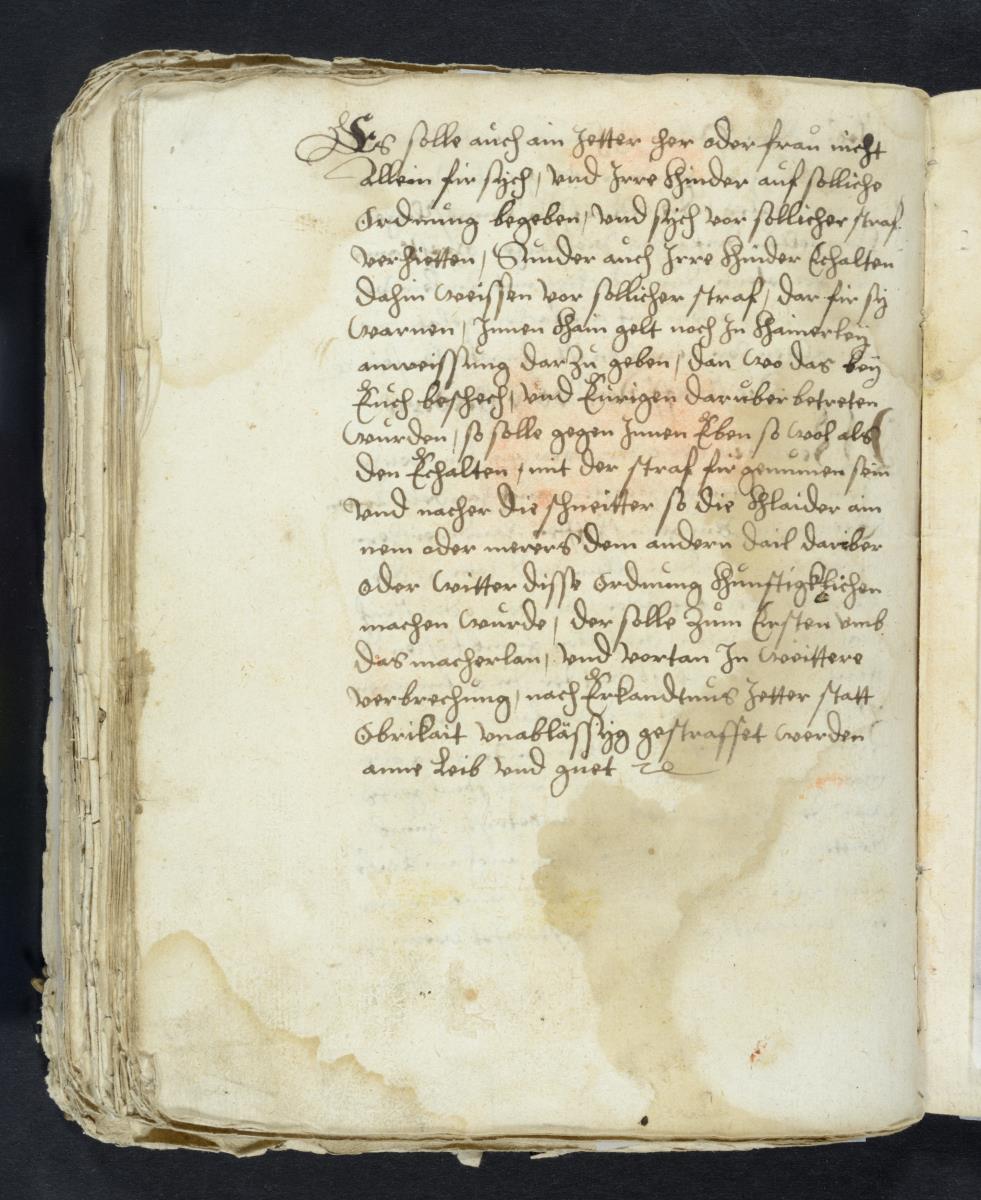 Es solle auch ain Jetter her oder frau nicht
Allein fir sych, vnd Irre Khinder auf solliche
Ordnung begeben, vnd sych vor sollicher straf
verhietten, Sunder auch Irre Khinder Echalten
dahin Weissen vor sollicher straf, dar fir sy
Warnen, Innen Khain gelt noch In Khainerley
anweissung darzu geben, dan Wo das bey
Euch beschech, vnd Eurigen daruber betreten
Wurden, so solle gegen Innen Eben so Wol als
den Echalten, mit der straf fir genumen sein
Vnd nacher die schneitter so die Khlaider ain
nem oder merers dem andern dail dariber
oder Witter disse Ordnung Khunftigklichen
machen Wurde, der solle Zum Ersten vmb
das macherlan, vnd vortan In Weittere
verbrechung, nach Erkandtnus Jetter statt
Obrikait vnablässyg gestraffet werden
anne Leib vnd guet